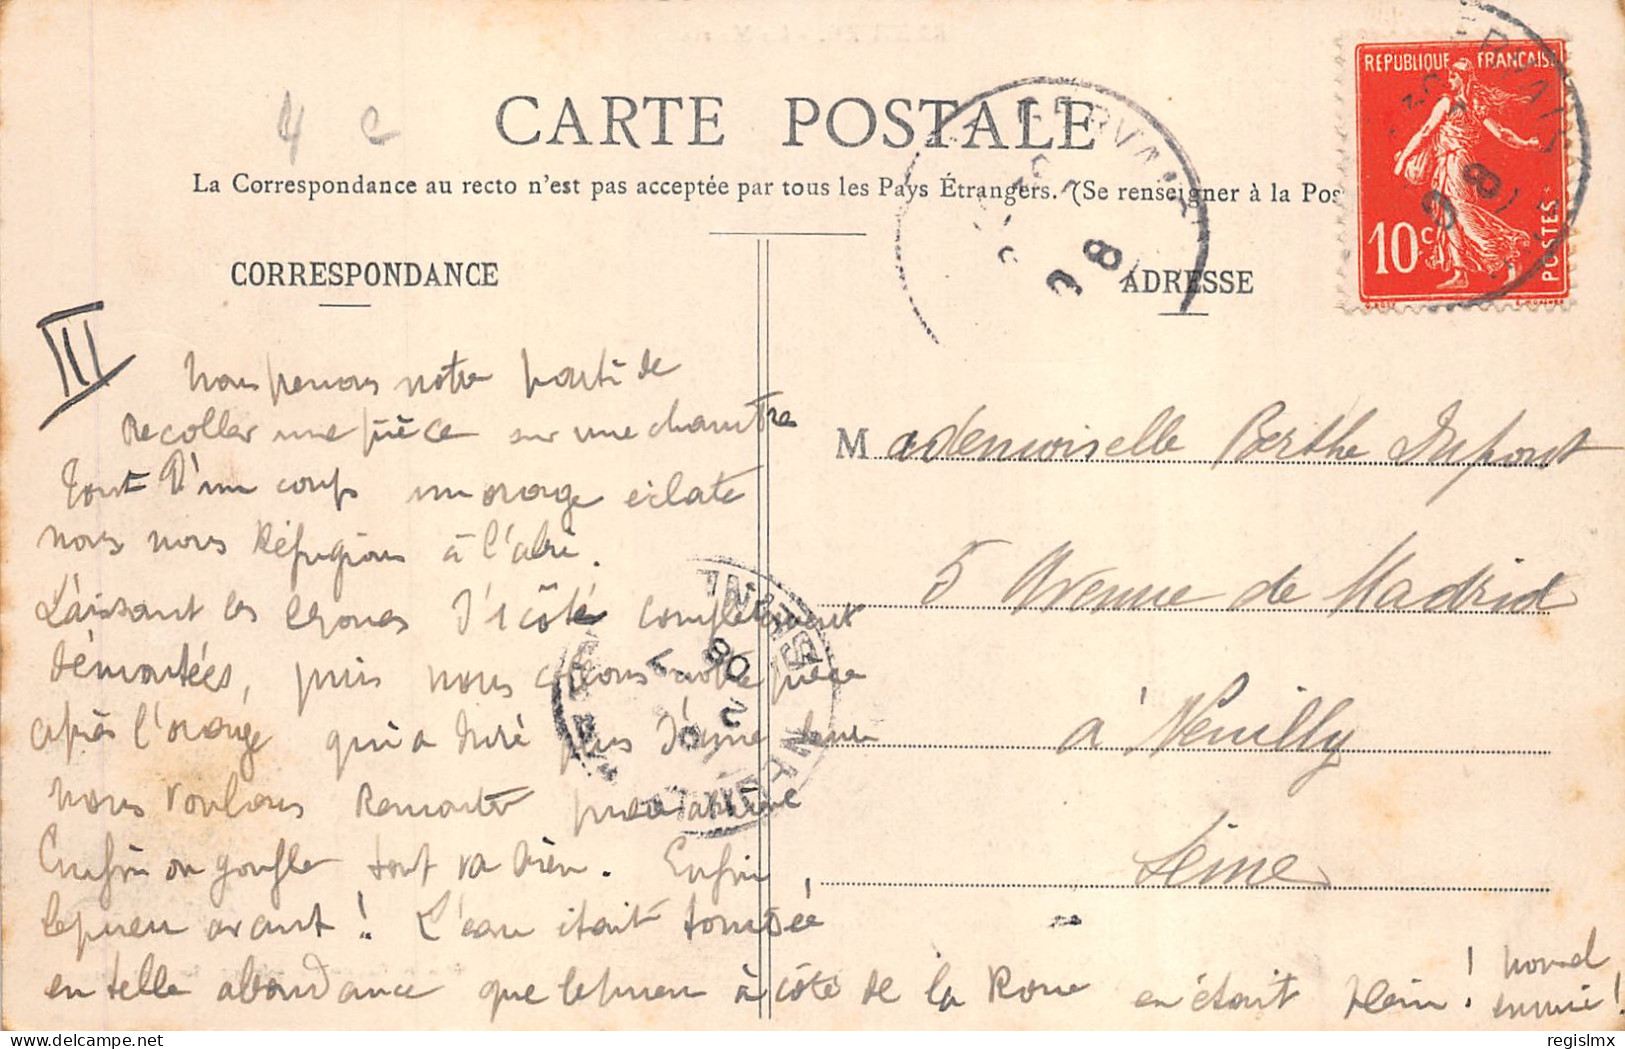 4 c
CARTE POSTALE
La Correspondance au recto n'est pas acceptée par tous les Pays Étrangers. (Se renseigner à la Pos
REPUBLIQUE FRANÇAISE
10 c
POSTES
CORRESPONDANCE
ADRESSE
III
Nous prenons notre parti de
recoller une pièce sur une chambre
Tout d'un coup un orage éclate
nous nous réfugions à l'abri.
Laissant les choses d'1 côté complètement
démontées, puis nous collons notre pièce
après l'orage qui a duré plus d'une heure
nous voulons remonter
Enfin on gonfle tout va bien. Enfin,
le pneu avant! L'eau était tombée
en telle abondance que le pneu à côté de la Roue en était plein! nouvel
ennui!
Mademoiselle Berthe Dupont
5 Avenue de Madrid
à Neuilly
Seine
regislmx